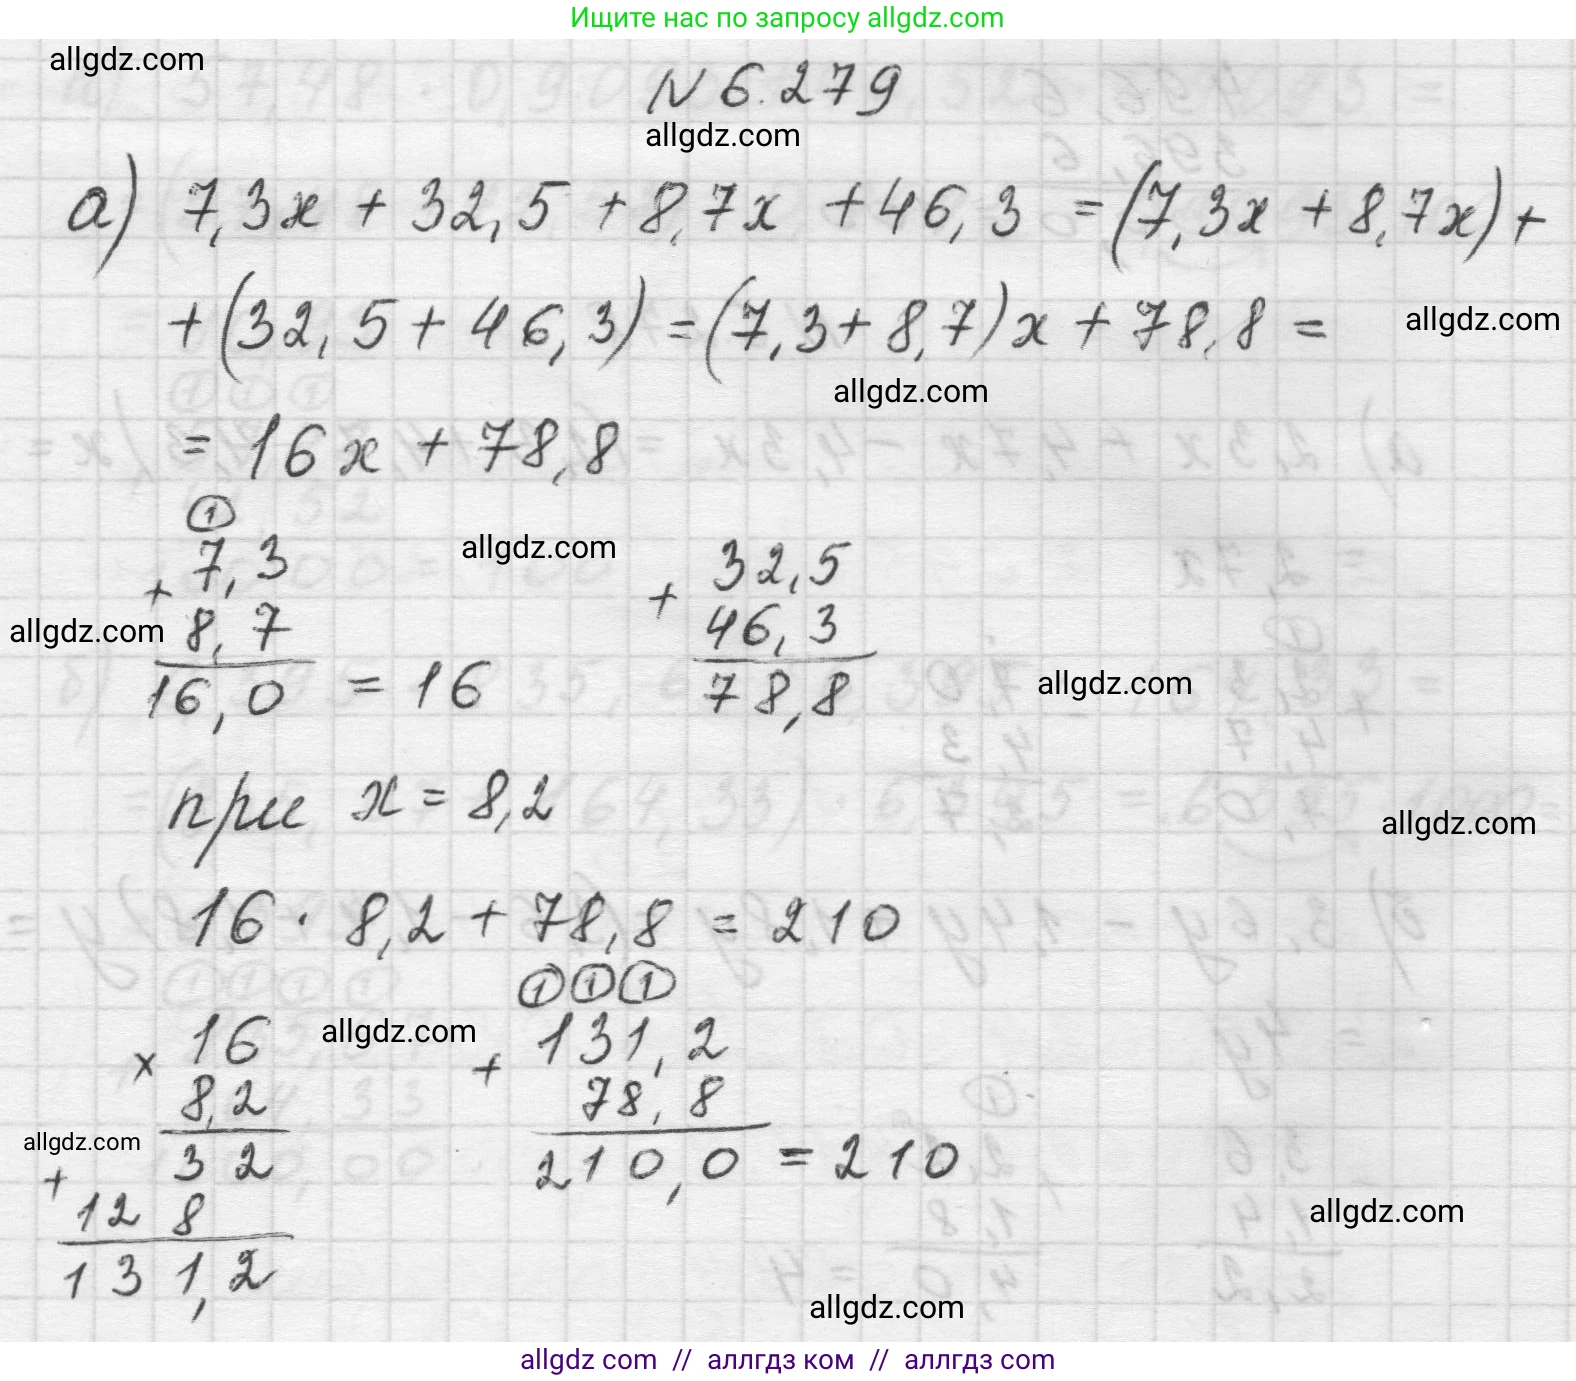 Ищите нас по запросу allgdz.com
allgdz.com
N 6.279
allgdz.com
а) 7,3x + 32,5 + 8,7x + 46,3 = (7,3x + 8,7x) +
+ (32,5 + 46,3) = (7,3 + 8,7)x + 78,8 =
allgdz.com
allgdz.com
= 16x + 78,8
1
7,3
+
8,7
16,0 = 16
allgdz.com
allgdz.com
32,5
+
46,3
78,8
allgdz.com
при x = 8,2
allgdz.com
16 · 8,2 + 78,8 = 210
16
×
8,2
32
+
12 8
131,2
allgdz.com
allgdz.com
1 1 1
131,2
+
78,8
210,0 = 210
allgdz.com
allgdz.com
allgdz com // аллгдз ком // аллгдз com